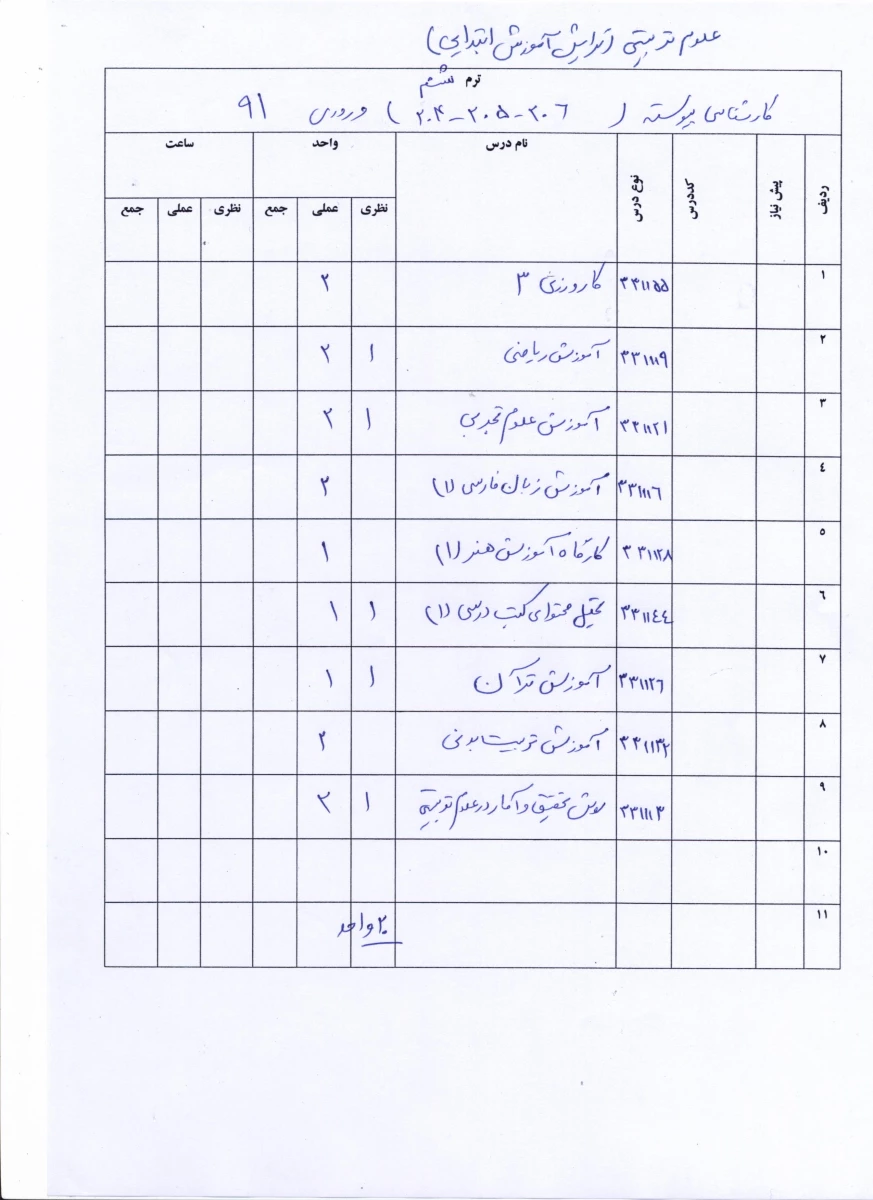 علوم تربیتی (گرایش آموزش ابتدایی)
ترم ششم
کارشناسی پیوسته ( ۲۰۶-۲۰۵-۲۰۴ ) ورودی ۹۱
ردیف پیش نیاز کددرس نوع درس نام درس واحد ساعت
نظری عملی جمع نظری عملی جمع
۱ ۳۳۱۱۵۵ کارورزی ۳ ۲
۲ ۳۳۱۱۱۹ آموزش ریاضی ۱ ۲
۳ ۳۳۱۱۲۱ آموزش علوم تجربی ۱ ۲
٤ ۳۳۱۱۱۶ آموزش زبان فارسی (۱) ۲
٥ ۳۳۱۱۲۸ کارگاه آموزش هنر (۱) ۱
٦ ۳۳۱۱٤٤ تحلیل محتوای کتب درسی (۱) ۱ ۱
۷ ۳۳۱۱۲۶ آموزش قرآن ۱ ۱
۸ ۳۳۱۱۳۲ آموزش تربیت بدنی ۲
۹ ۳۳۱۱۱۳ روش تحقیق و آمار در علوم تربیتی ۱ ۲
۱۰
۱۱ ۲۰ واحد